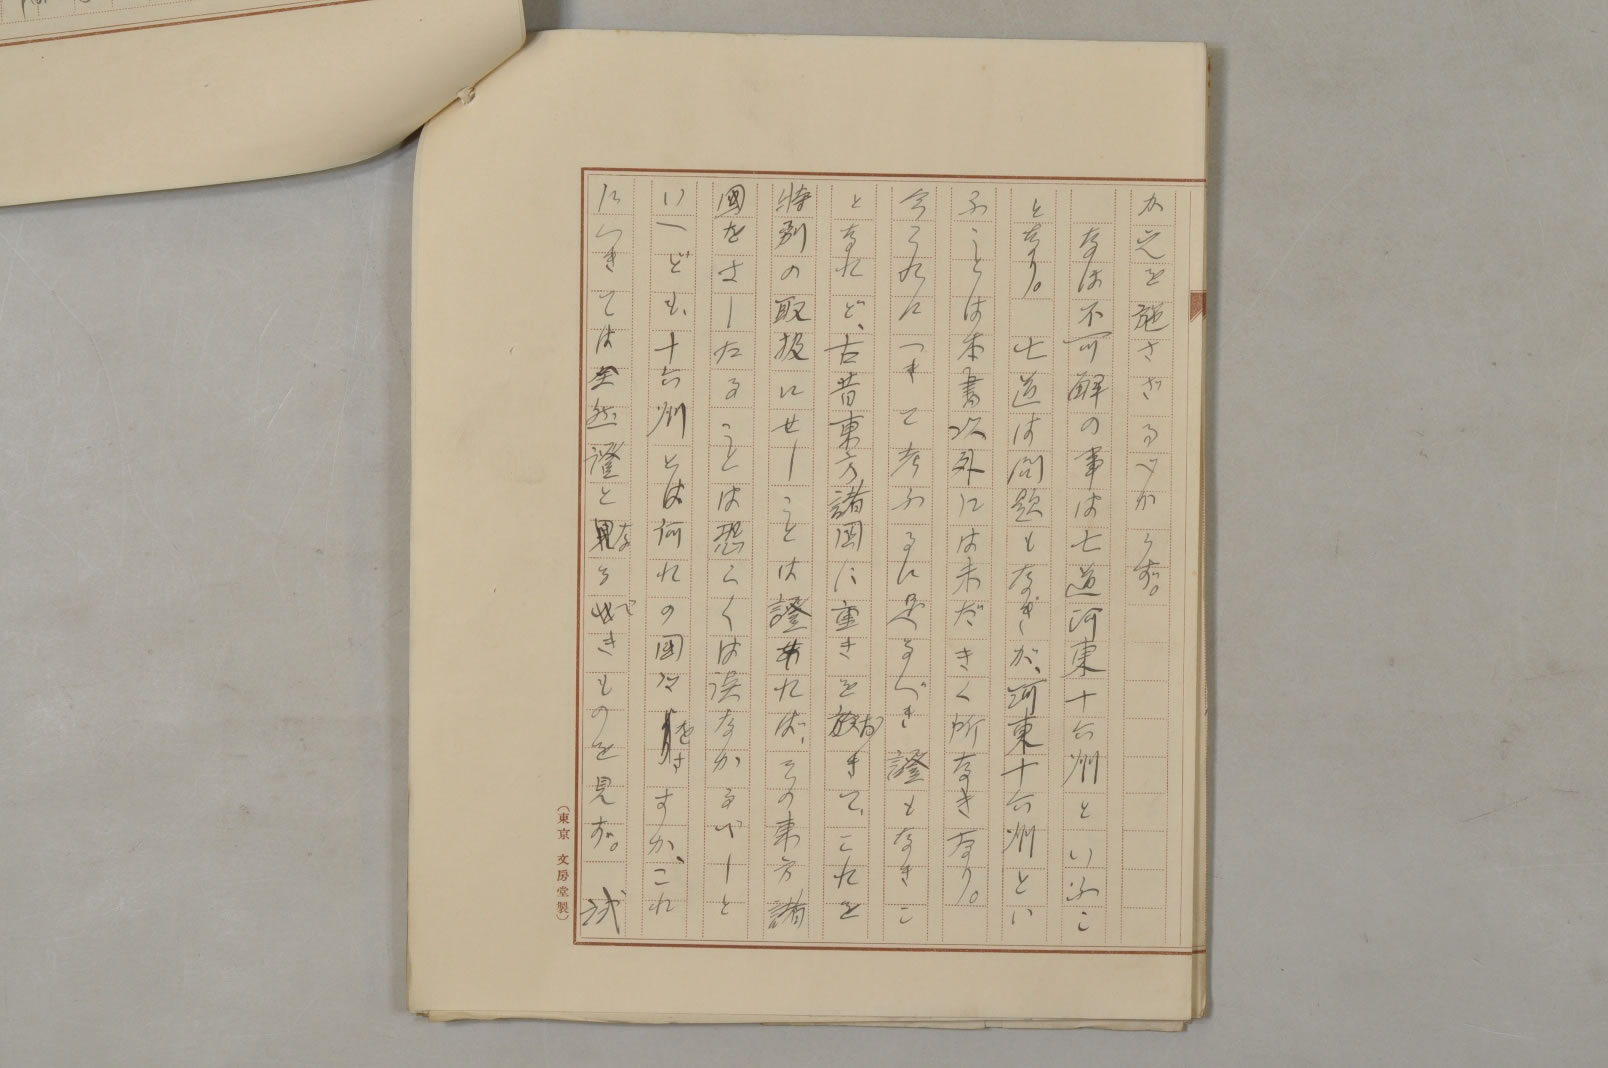 か之を施さざるべからず。
なほ不可解の事は七道河東十六州といふこ
となり。七道は問題もなきが、河東十六州とい
ふことは本書以外には未だきく所なきなり。
今これにつきて考ふるに足るべき證もなきこ
となれど、古昔東方諸国に重きをおきて、これを
特別の取扱にせしことは證あれば、その東方諸
國をさしたることは恐らくは誤なかるべしと
いへども、十六州とは何れの国々をさすか、これ
につきては全然證となるべきものを見ず。試
(東京 文房堂製)